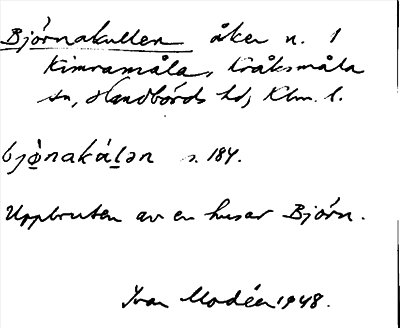 Björnakullen åker n. 1
Kimramåla, Kråksmåla
sn, Handbörds hd, Klm. l.
bjǫ̀nakáḷən s. 184.
Uppbruten av en husar Björn.
Ivar Modéer 1948.